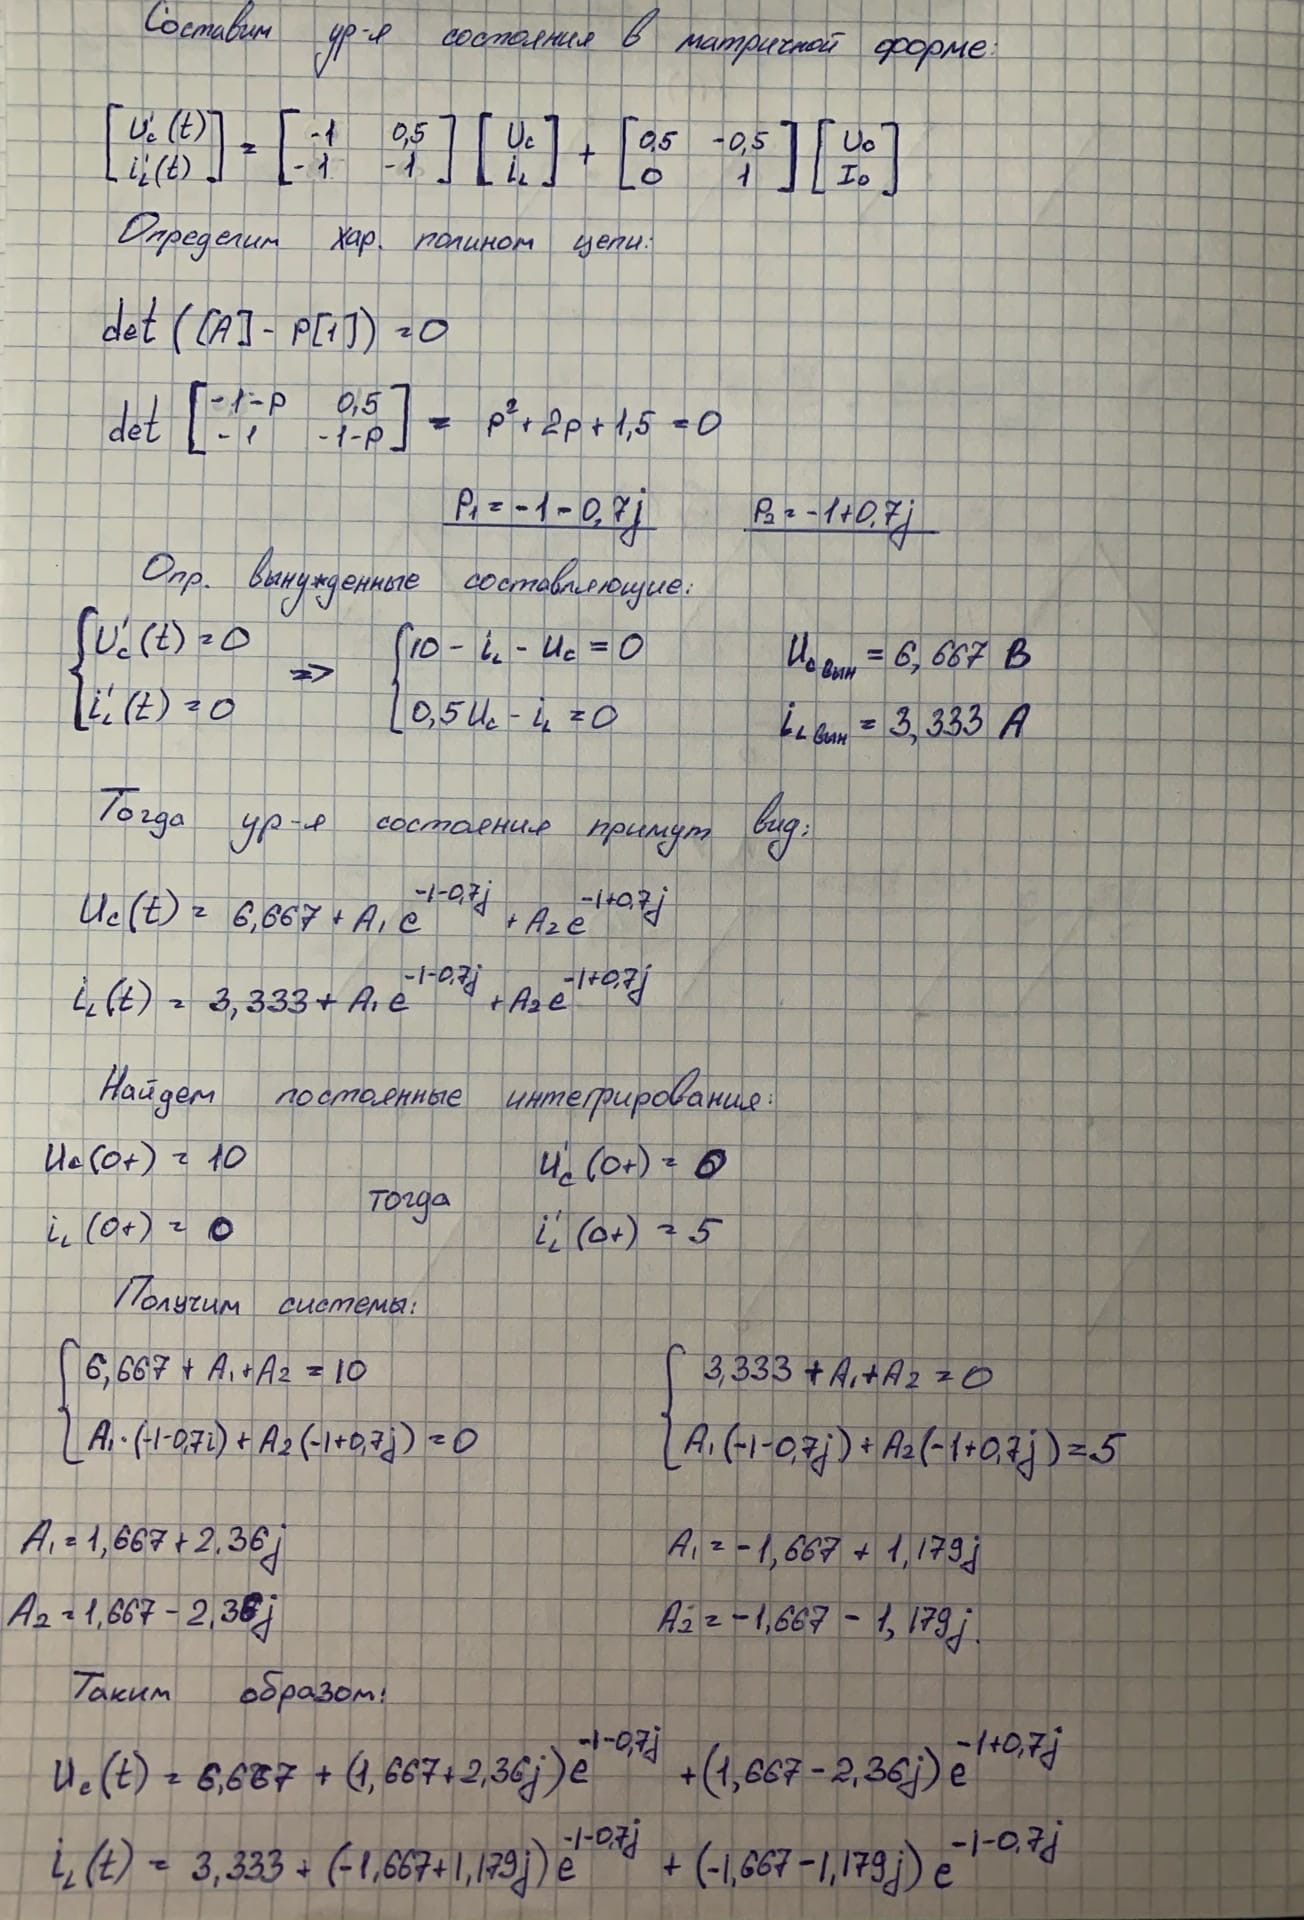 Составим ур-я состояния в матричной форме:
[U'c(t) i'L(t)] = [-1 0,5 -1 -1] [Uc iL] + [0,5 -0,5 0 1] [U0 I0]
Определим хар. полином цепи:
det ([A] - p[1]) = 0
det [-1-p 0,5 -1 -1-p] = p² + 2p + 1,5 = 0
P1 = -1 - 0,7j P2 = -1+0,7j
Опр. вынужденные составляющие:
{U'c(t) = 0 => {10 - iL - Uc = 0 Uc вын = 6,667 В
i'L(t) = 0 0,5Uc - iL = 0 iL вын = 3,333 А
Тогда ур-я состояния примут вид:
Uc(t) = 6,667 + A1 e^-1-0,7j + A2 e^-1+0,7j
iL(t) = 3,333 + A1 e^-1-0,7j + A2 e^-1+0,7j
Найдем постоянные интегрирования:
Uc(0+) = 10 U'c(0+) = 0
тогда
iL(0+) = 0 i'L(0+) = 5
Получим системы:
{6,667 + A1 + A2 = 10 {3,333 + A1 + A2 = 0
A1·(-1-0,7i) + A2(-1+0,7j) = 0 A1(-1-0,7j) + A2(-1+0,7j) = 5
A1 = 1,667 + 2,36j A1 = -1,667 + 1,179j
A2 = 1,667 - 2,36j A2 = -1,667 - 1,179j.
Таким образом:
Uc(t) = 6,667 + (1,667+2,36j)e^-1-0,7j + (1,667-2,36j)e^-1+0,7j
iL(t) = 3,333 + (-1,667+1,179j)e^-1-0,7j + (-1,667-1,179j)e^-1-0,7j